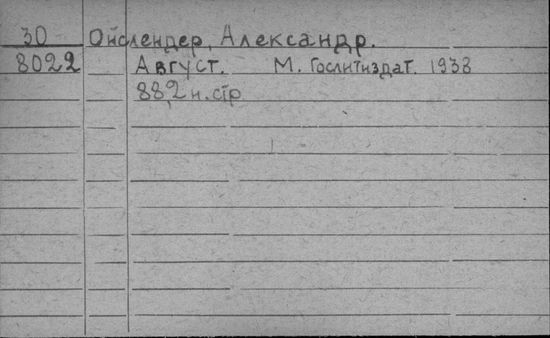 30 Ойслендер, Александр.
8022 Август. М. Гослитиздат. 1938
88,2 н. стр